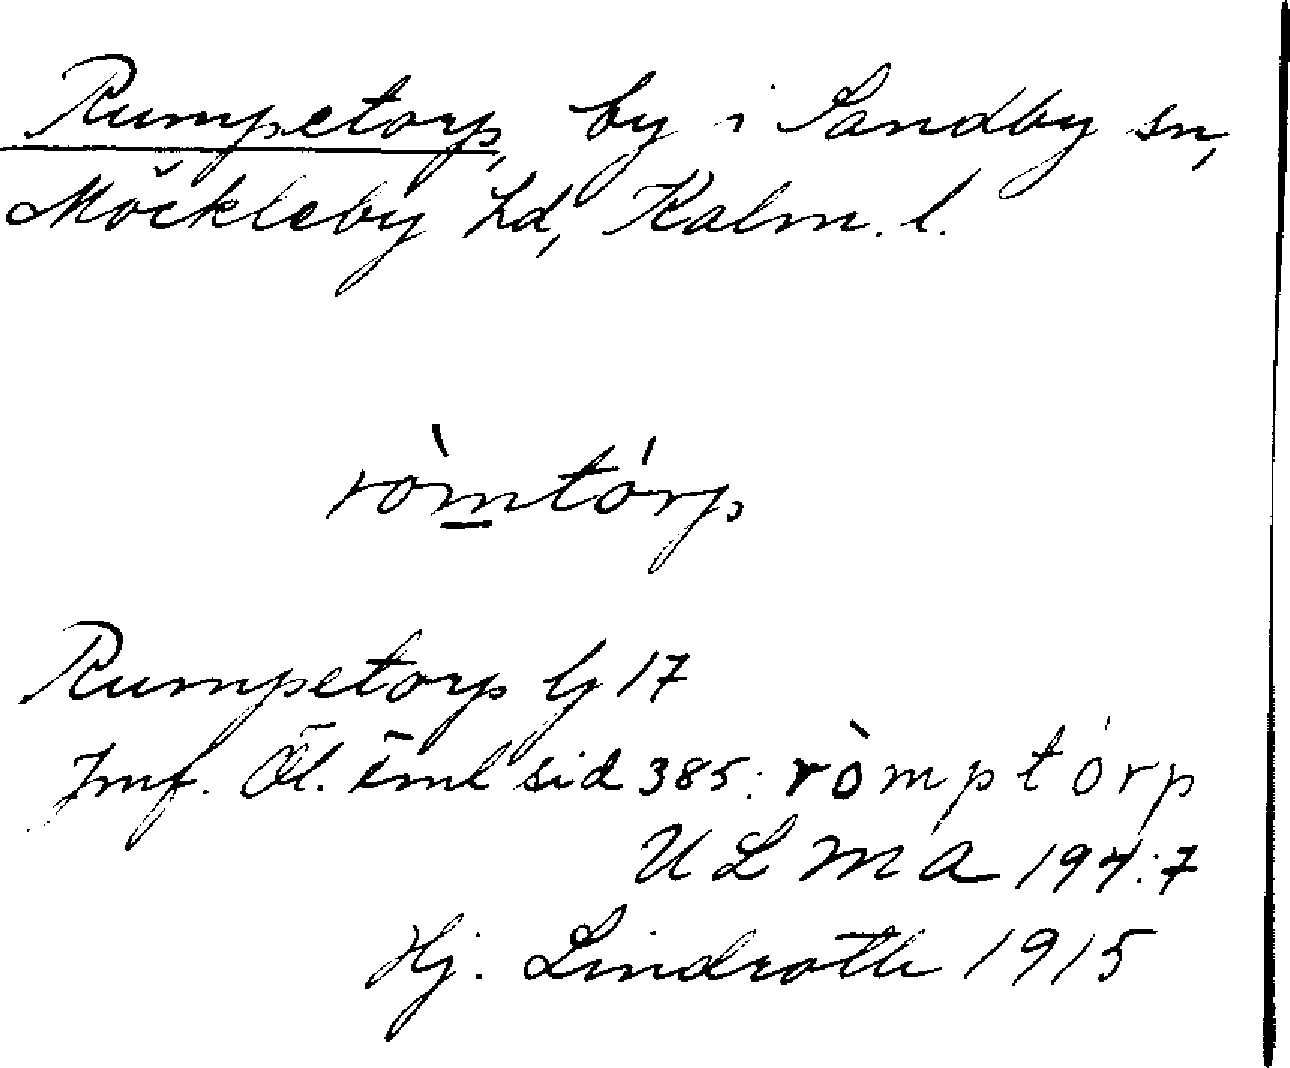 Rumpetorp, by i Sandby sn,
Möckleby hd, Kalm. l.
ròmtórp
Rumpetorp by 17
Jmf. Öl. Fml sid 385: ròmptórp
ULMA 194:7
Hj. Lindroth 1915